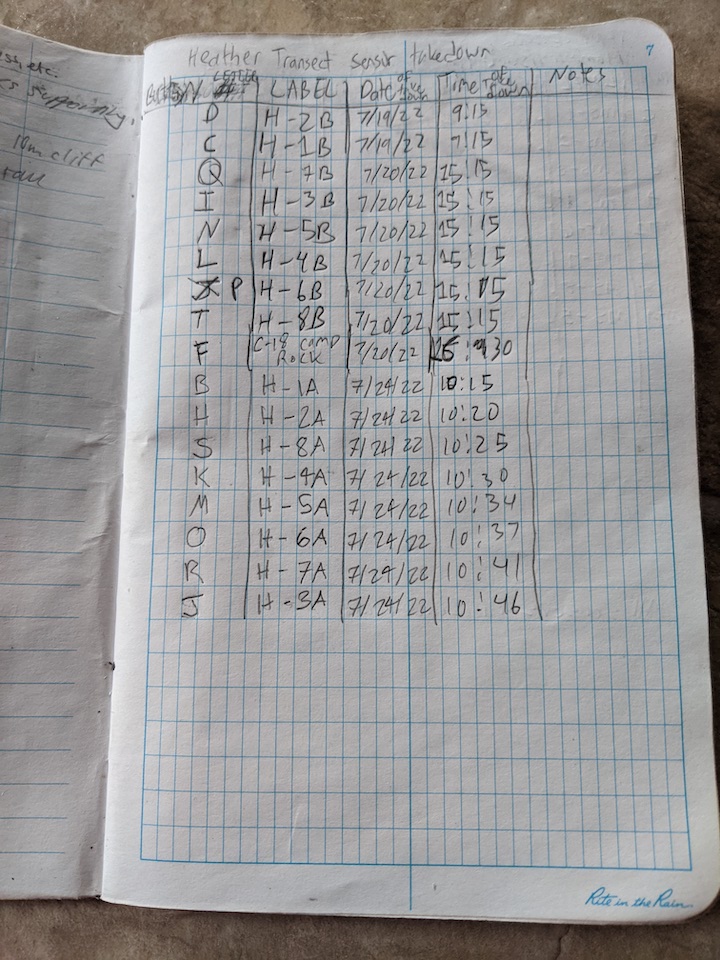 Heather Transect sensor takedown
7
Button LETTER LABEL Date of take down Time of take down Notes
D H-2B 7/19/22 9:15
C H-1B 7/19/22 7:15
Q H-7B 7/20/22 15:15
I H-3B 7/20/22 15:15
N H-5B 7/20/22 15:15
L H-4B 7/20/22 15:15
P H-6B 7/20/22 15:15
T H-8B 7/20/22 15:15
F C-18 camp ROCK 7/20/22 :30
B H-1A 7/24/22 10:15
H H-2A 7/24/22 10:20
S H-8A 7/24/22 10:25
K H-4A 7/24/22 10:30
M H-5A 7/24/22 10:34
O H-6A 7/24/22 10:37
R H-7A 7/24/22 10:41
J H-3A 7/24/22 10:46
etc.
10m cliff
Rite in the Rain